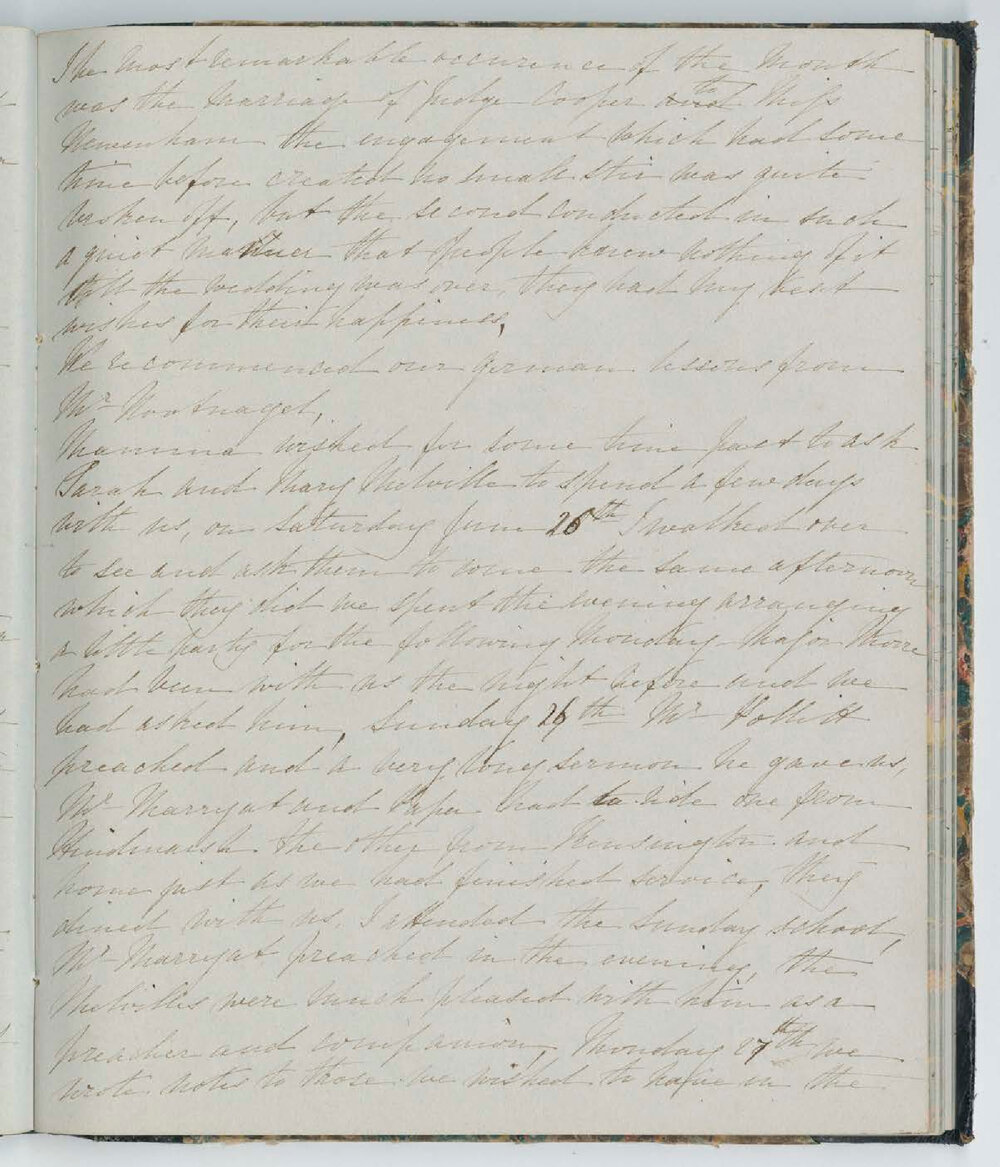 The most remarkable occurence of the Month
was the marriage of Judge Cooper and to Miss
Newenham the engagement which had some
time before created no small stir was quite
broken off, but the second conducted in such
a quiet manner that people knew nothing of it
till the wedding was over, they had my best
wishes for their happiness,
We recommenced our german lessons from
Mr Nootnagel,
Mamma wished for some time past to ask
Sarah and Mary Melville to spend a few days
with us, on Saturday June 25th I walked over
to see and ask them to come the same afternoon
which they did we spent the evening arranging
a little party for the following Monday Major Moore
had been with us the night before and we
had asked him, Sunday 26th Mr Pollitt
preached and a very long sermon he gave us,
Mr Marryat and Papa had to ride one from
Hindmarsh the other from Kensington and
home just as we had finished service, they
dined with us. I attended the Sunday school,
Mr Marryat preached in the evening, the
Melvilles were much pleased with him as a
preacher and companion, Monday 27th we
wrote notes to those we wished to have in the